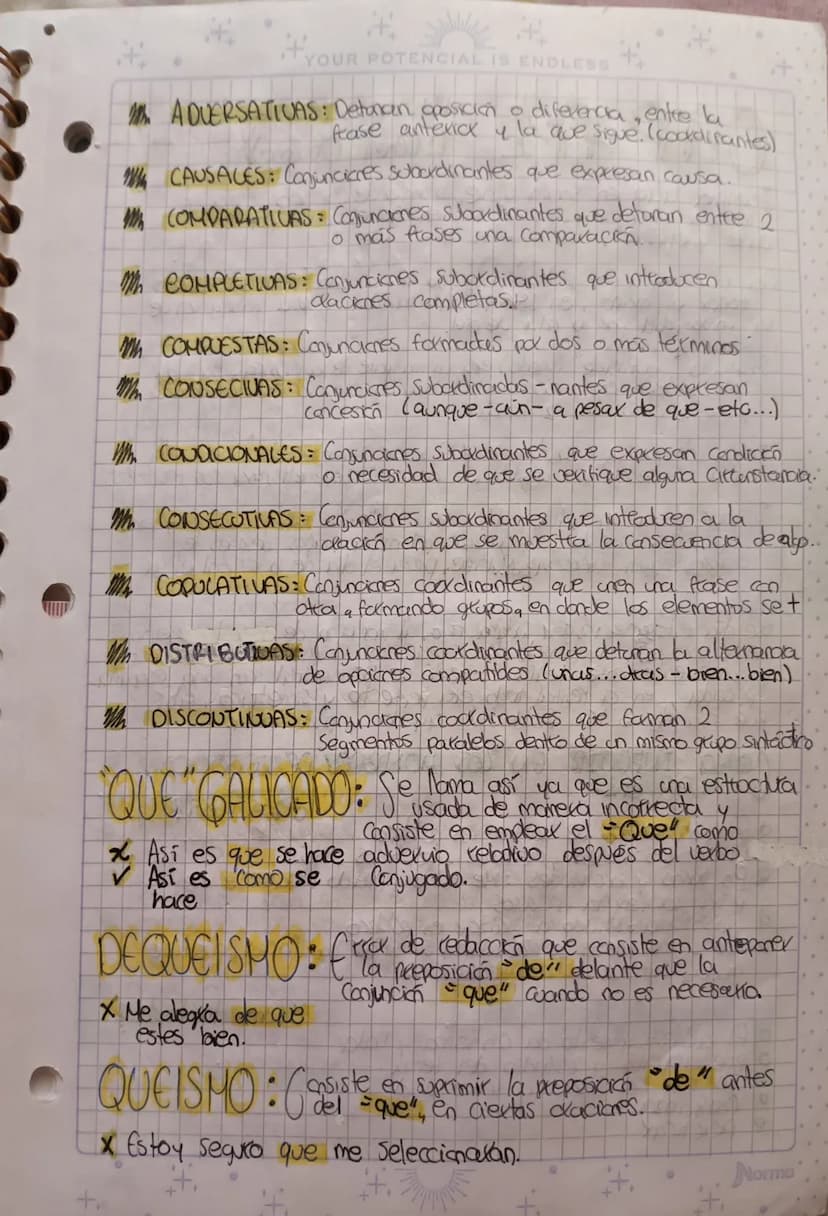 YOUR POTENCIAL IS ENDLESS
ADVERSATIVAS: Detonan oposición o diferencia, entre la
frase anterior y la que sigue. (coordinantes)
CAUSALES: Conjunciones subordinantes que expresan causa.
COMPARATIVAS: Conjunciones subordinantes que detonan entre 2
o más frases una comparación.
COMPLETIVAS: Conjunciones subordinantes que introducen
oraciones completas.
COMPUESTAS: Conjunciones formadas por dos o más términos
CONSECIVAS: Conjunciones subordinadas-nantes que expresan
concesión (aunque-aún- a pesar de que-etc...)
CONDICIONALES: Conjunciones subordinantes que expresan condición
o necesidad de que se verifique alguna circunstancia.
CONSECUTIVAS: Conjunciones subordinantes que introducen a la
oración en que se muestra la consecuencia de algo.
COPULATIVAS: Conjunciones coordinantes que unen una frase con
otra, formando grupos, en donde los elementos se +
DISTRIBUTIVAS: Conjunciones coordinantes que detonan la alternancia
de opciones compatibles (unas...otras - bien...bien)
DISCONTINUAS: Conjunciones coordinantes que forman 2
segmentos paralelos dentro de un mismo grupo sintáctico
"QUE" GALICADO: Se llama así ya que es una estructura
usada de manera incorrecta y
consiste en emplear el "Que" como
x Así es que se hace adverbio relativo después del verbo
✓ Así es como se conjugado.
hace
DEQUEISMO: Error de redacción que consiste en anteponer
la preposición "de" delante que la
conjunción "que" cuando no es necesaria.
x Me alegra de que
estes bien.
QUEISMO: Consiste en suprimir la preposición "de" antes
del "que", en ciertas oraciones.
x Estoy seguro que me seleccionarán.
Norma